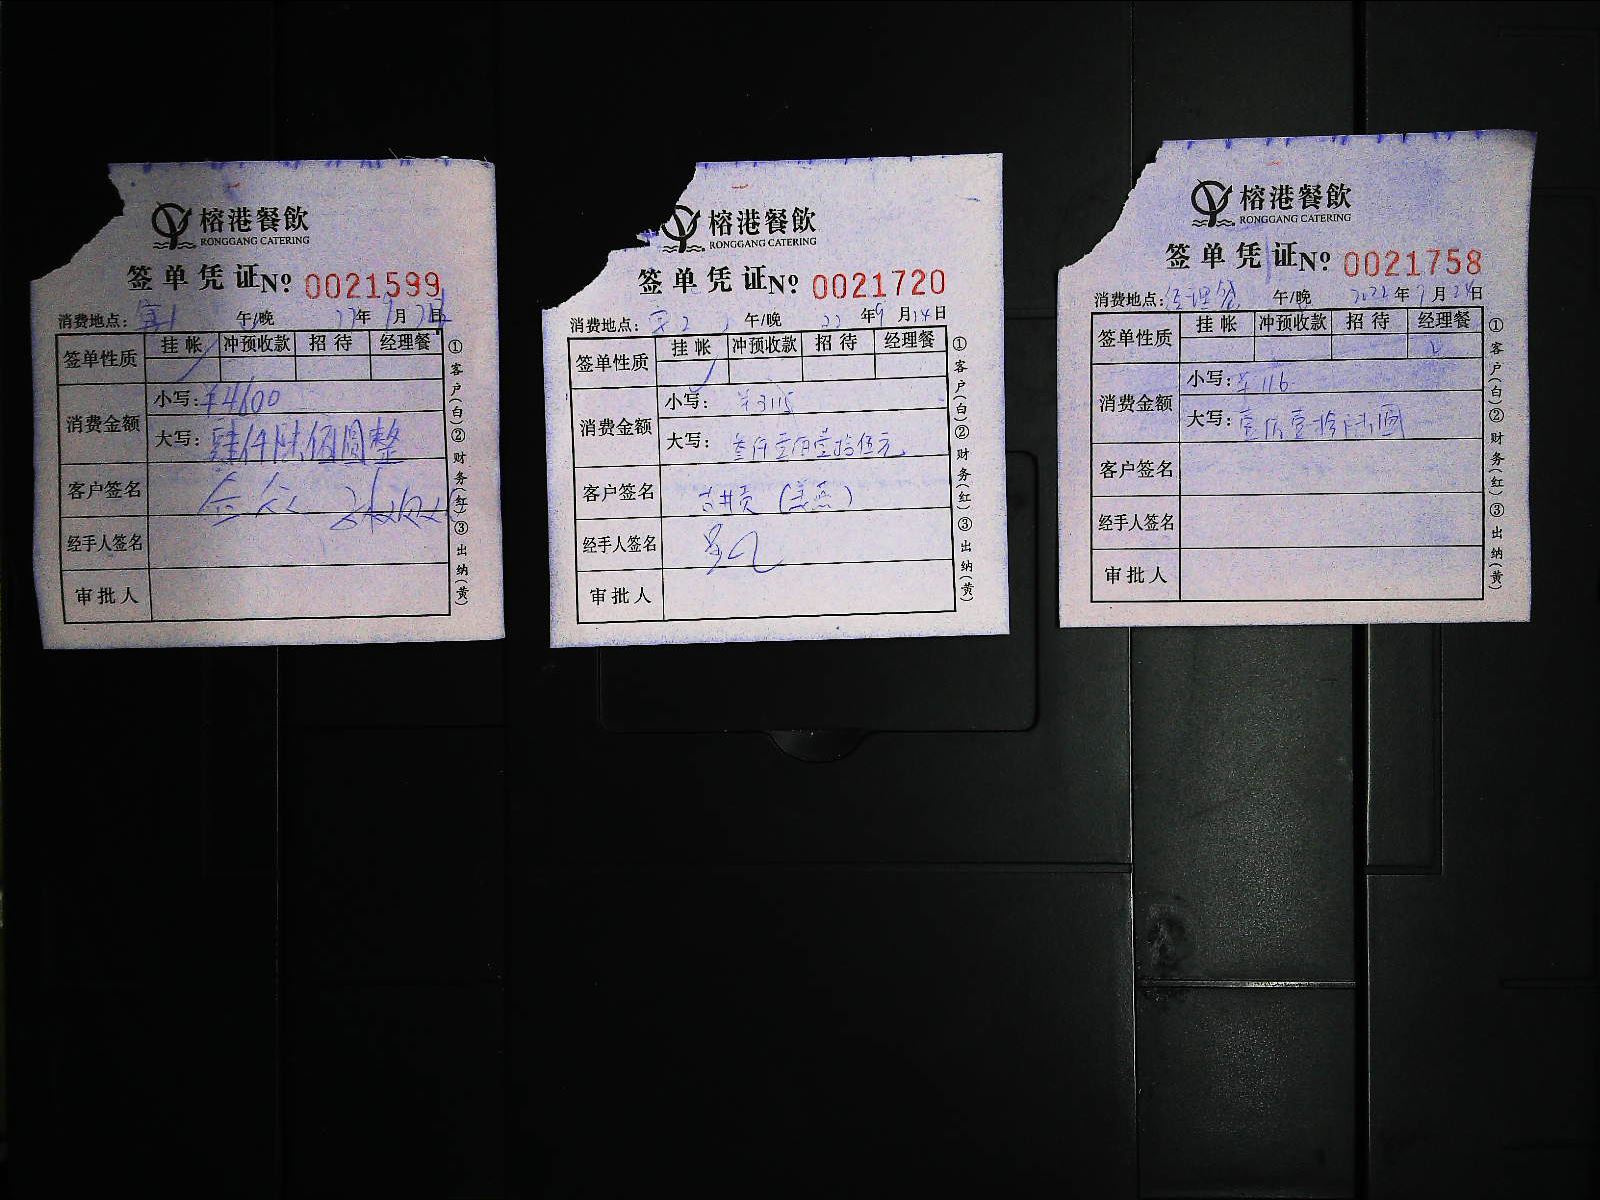 榕港餐飲
RONGGANG CATERING
签单凭证 Nº 0021599
消费地点: 午/晚 22年9月24日
签单性质 挂帐 冲预收款 招待 经理餐
消费金额
小写: ¥4600
大写: 肆仟陆佰圆整
客户签名
经手人签名
审批人
①客户(白)②财务(红)③出纳(黄)
榕港餐飲
RONGGANG CATERING
签单凭证 Nº 0021720
消费地点: 午/晚 22年9月24日
签单性质 挂帐 冲预收款 招待 经理餐
消费金额
小写: ¥3115
大写: 叁仟壹佰壹拾伍元
客户签名
经手人签名
审批人
①客户(白)②财务(红)③出纳(黄)
榕港餐飲
RONGGANG CATERING
签单凭证 Nº 0021758
消费地点: 经理餐 午/晚 2022年9月24日
签单性质 挂帐 冲预收款 招待 经理餐
消费金额
小写: ¥116
大写: 壹佰壹拾陆圆
客户签名
经手人签名
审批人
①客户(白)②财务(红)③出纳(黄)